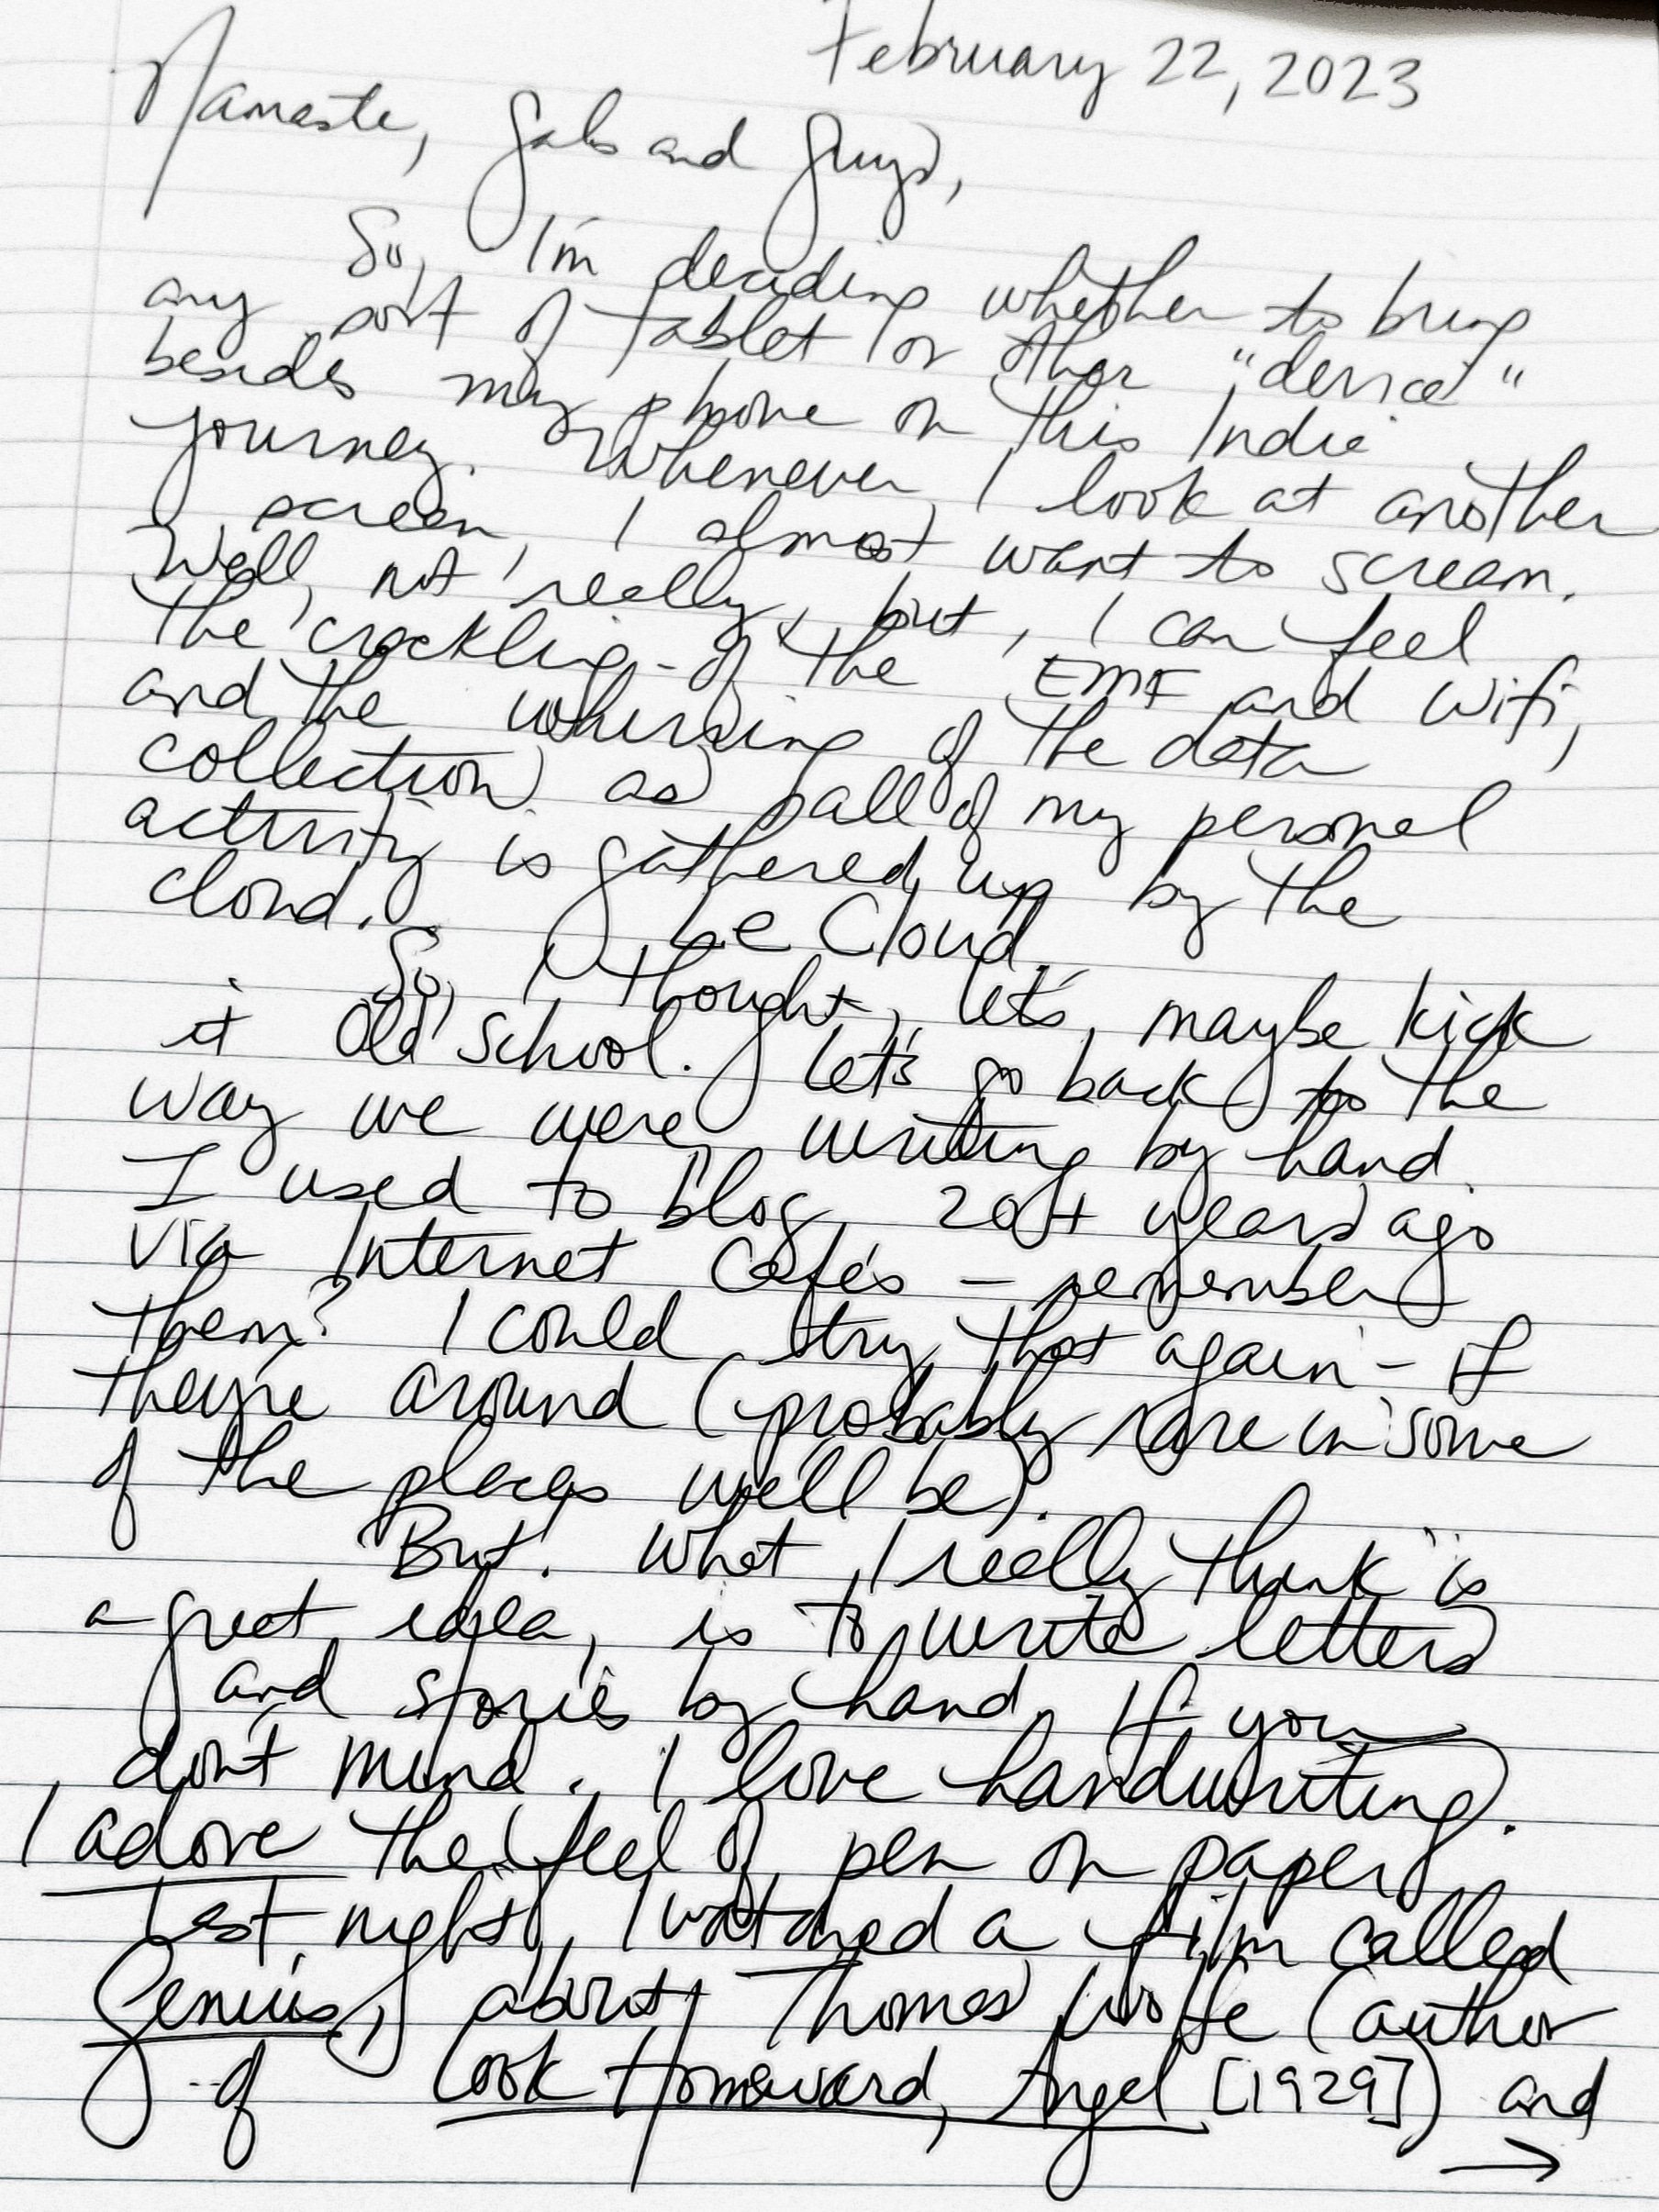 February 22, 2023
Namaste, Gals and Guys,
So, I'm deciding whether to bring
any sort of tablet or other "device"
besides my phone on this Indie
journey. Whenever I look at another
screen, I almost want to scream.
Well, not really, but, I can feel
the crackling of the EMF and Wifi,
and the whirring of the data
collection as all of my personal
activity is gathered up by the
cloud. Le Cloud.
So, I thought, let's, maybe kick
it Old School. Let's go back to the
way we were, writing by hand.
I used to blog, 20+ years ago
via Internet Cafés – remember
them? I could try that again – if
they're around (probably rare in some
of the places we'll be).
But! What I really think is
a great idea, is to write letters
and stories by hand. If you
don't mind. I love handwriting.
I adore the feel of pen on paper.
Last night, I watched a film called
Genius, about Thomas Wolfe (author
of Look Homeward, Angel [1929]) and
→